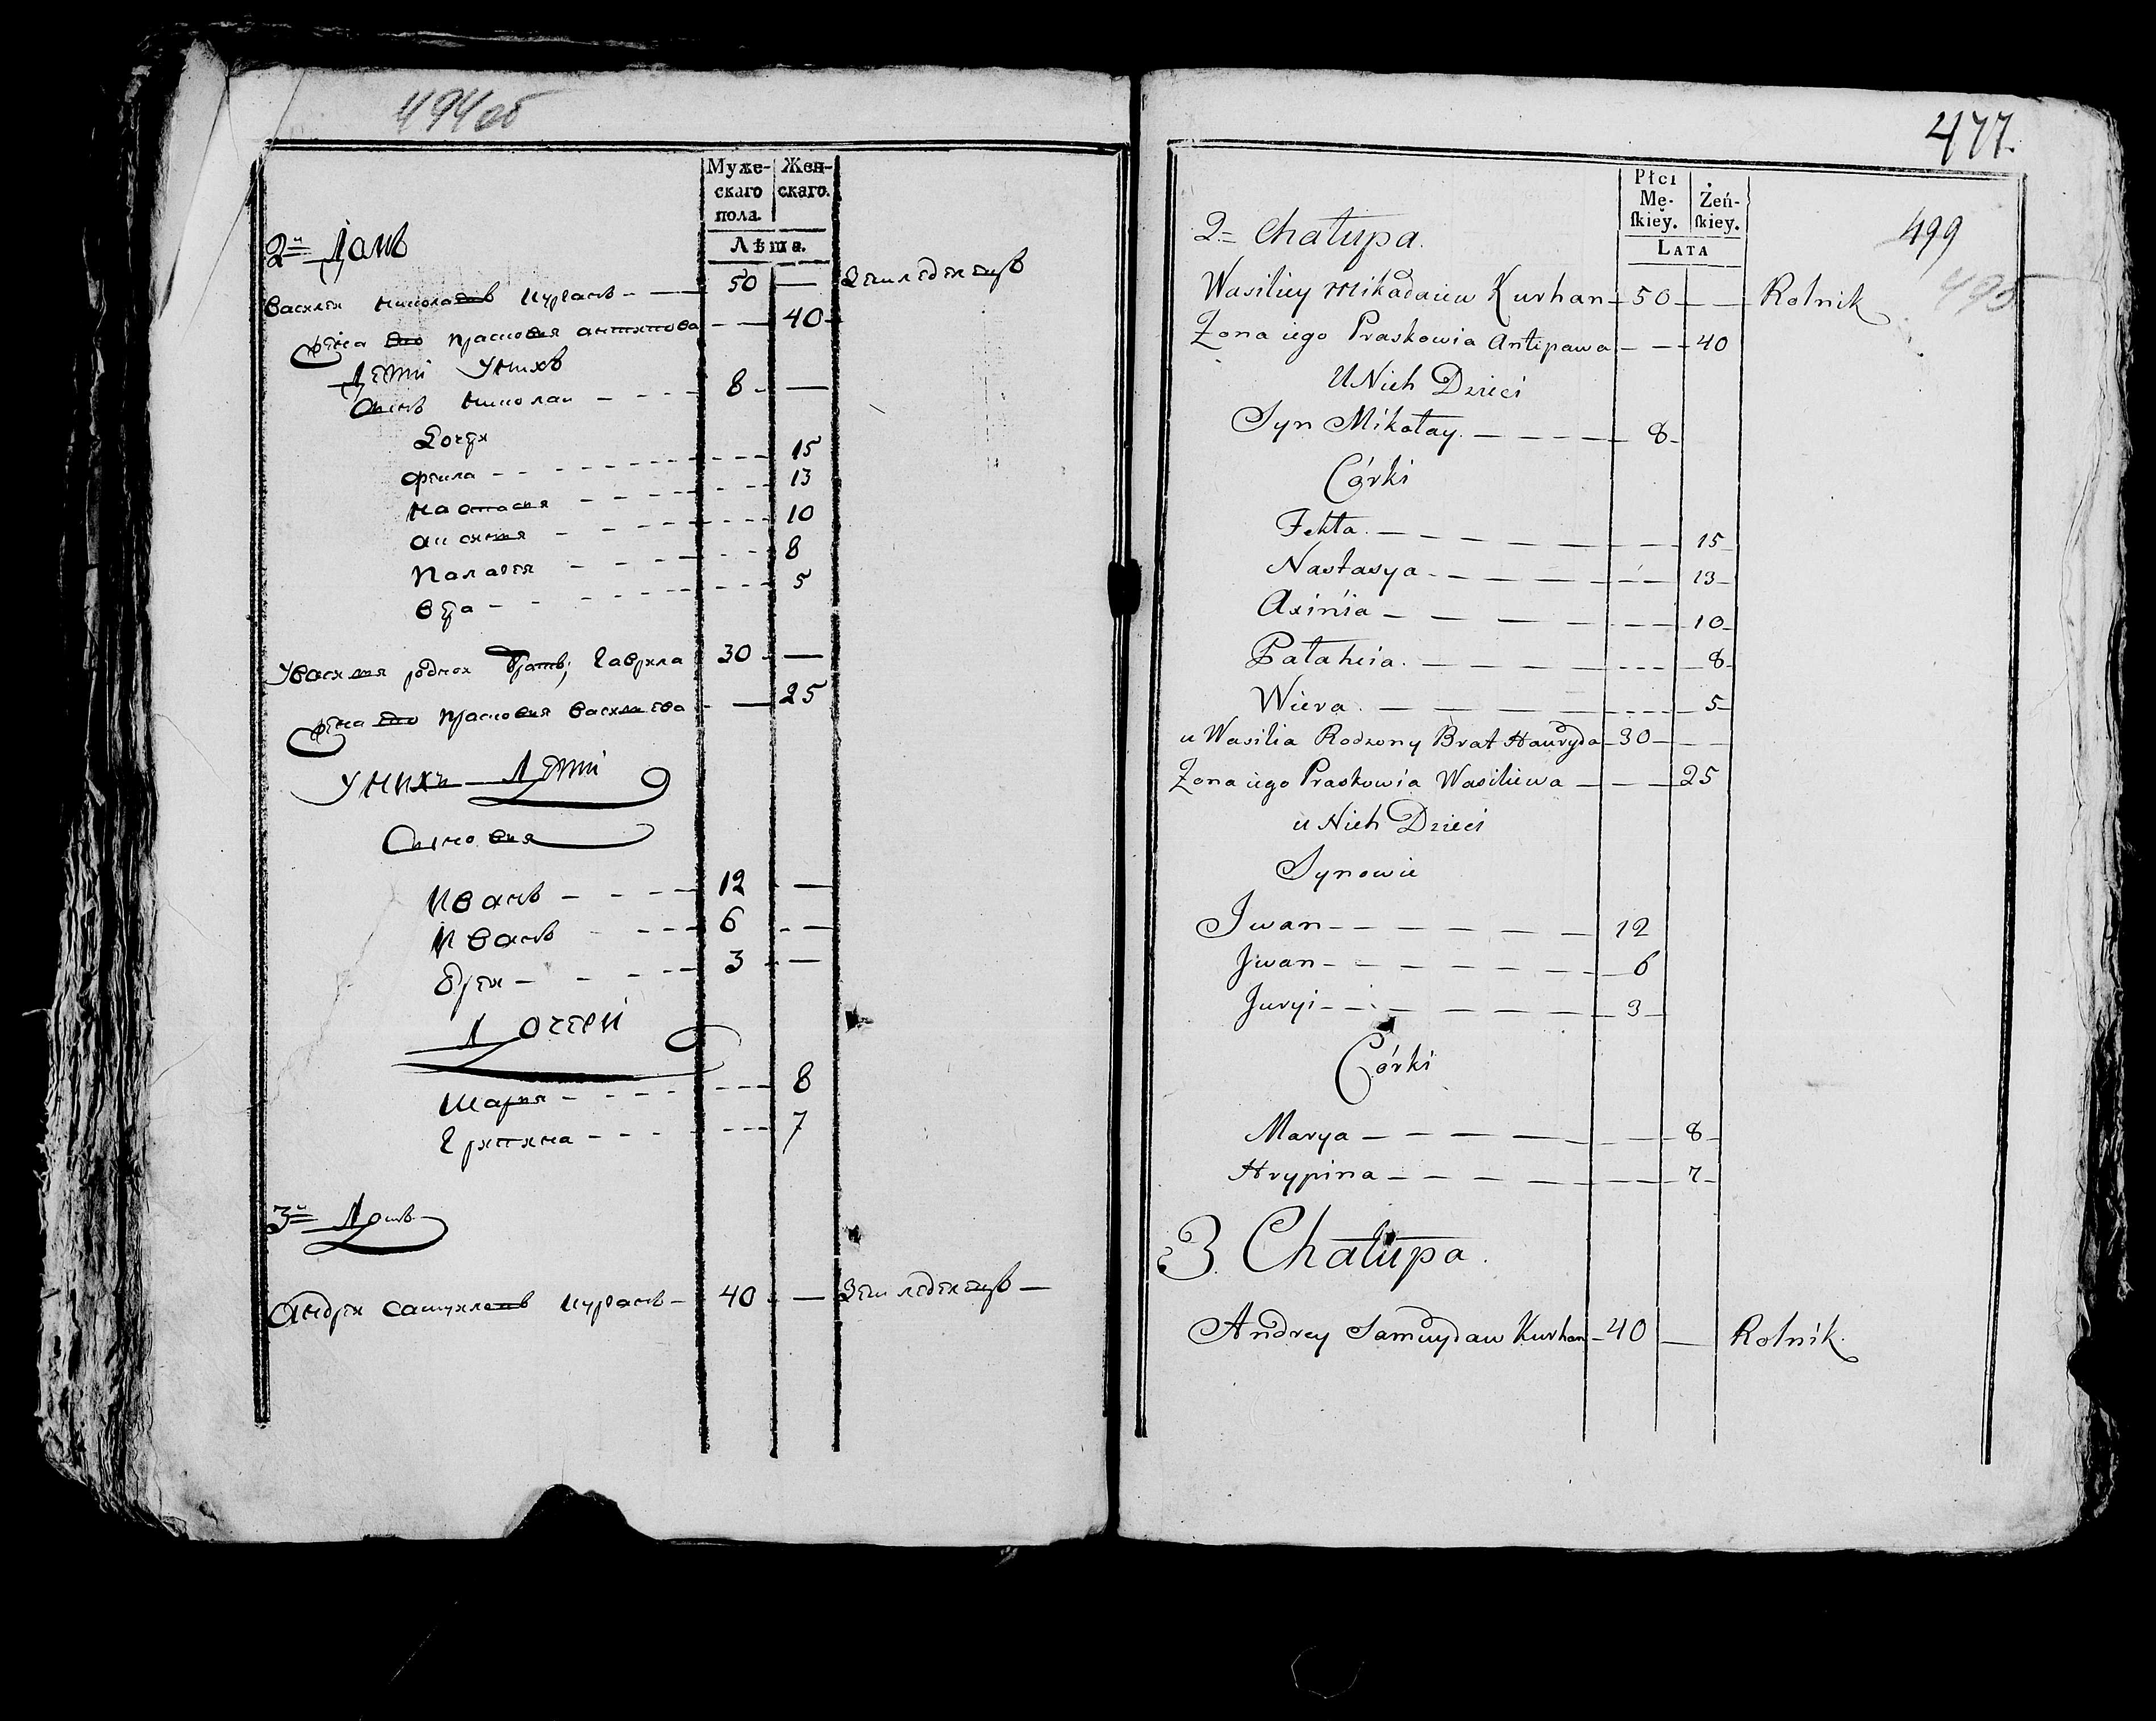 494об
Муже-
скаго
пола.
Жен-
скаго.
Лѣта.
2й Домъ
Василей Николаевъ Курганъ 50 — Земледелецъ
Жена его Прасковея Антипова — 40
Дети Унихъ
Сынъ Николай 8 —
Дочери
Фекла 15
Настасея 13
Аксинея 10
Палагея 8
Вера 5
Увасилея родной Братъ, Гаврила 30 —
Жена его Прасковея Васильева — 25
Унихъ Дети
Сыновея
Иванъ 12 —
Иванъ 6 —
3 —
Дочери
Марея 8
Грипина 7
3й Домъ
Андрей Самуилевъ Курганъ 40 — Земледелецъ —
477.
499
495
Płci
Mę-
ſkiey.
Żeń-
ſkiey.
Lata
2 Chałupa.
Wasiliey Mikałaiew Kurhan 50 — Rolnik
Zona iego Praskowia Antipawa — 40
U Nich Dzieci
Syn Mikołay. 8
Córki
Fekła. 15
Nastasya 13
Axinia 10
Pałaheia. 8
Wiera. 5
u Wasilia Rodzony Brat Hauryła 30 —
Zona iego Praskowia Wasiliewa — 25
u Nich Dzieci
Synowie
Jwan 12
Jwan 6
Juryi 3
Córki
Marya 8
Hrypina 7
3. Chałupa.
Andrey Samuyław Kurhan 40 — Rolnik.